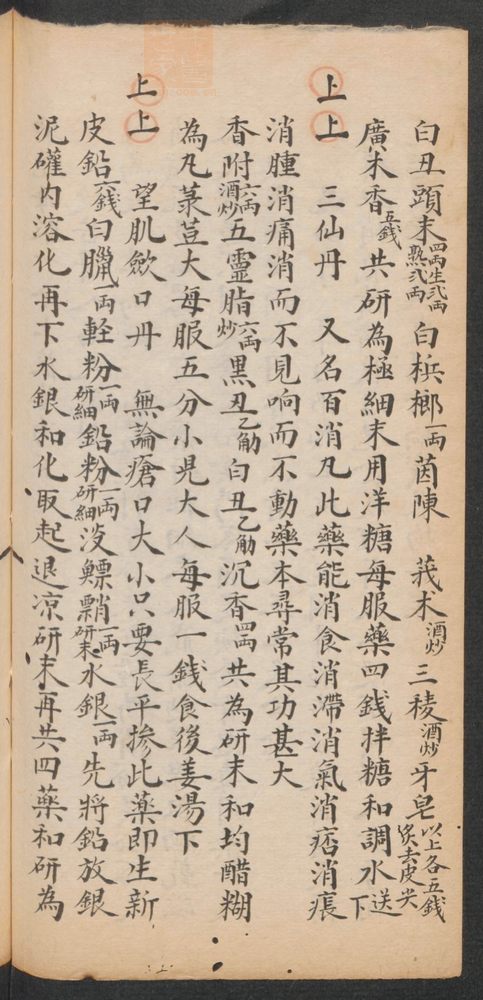 白丑頭末四両生弍両熟弍両白梹榔一両茵陳 莪术酒炒三稜酒炒牙皂以上各五錢炙去皮尖
廣木香五錢共研為極細末用洋糖每服藥四錢拌糖和調水送下
上上 三仙丹 又名百消丸此藥能消食消滯消氣消痞消痕
消腫消痛消而不見响而不動藥本尋常其功甚大
香附六両酒炒五靈脂六両炒黑丑乙觔白丑乙觔沉香四両共為研末和均醋糊
為丸菉荳大每服五分小児大人每服一錢食後姜湯下
上上 望肌歛口丹 無論瘡口大小只要長平掺此藥即生新
皮鉛六錢白臘一両軽粉一両研細鉛粉一両研細沒鰾鞘一両研末水銀一両先將鉛放銀
泥礶內溶化再下水銀和化取起退凉研末再共四藥和研為